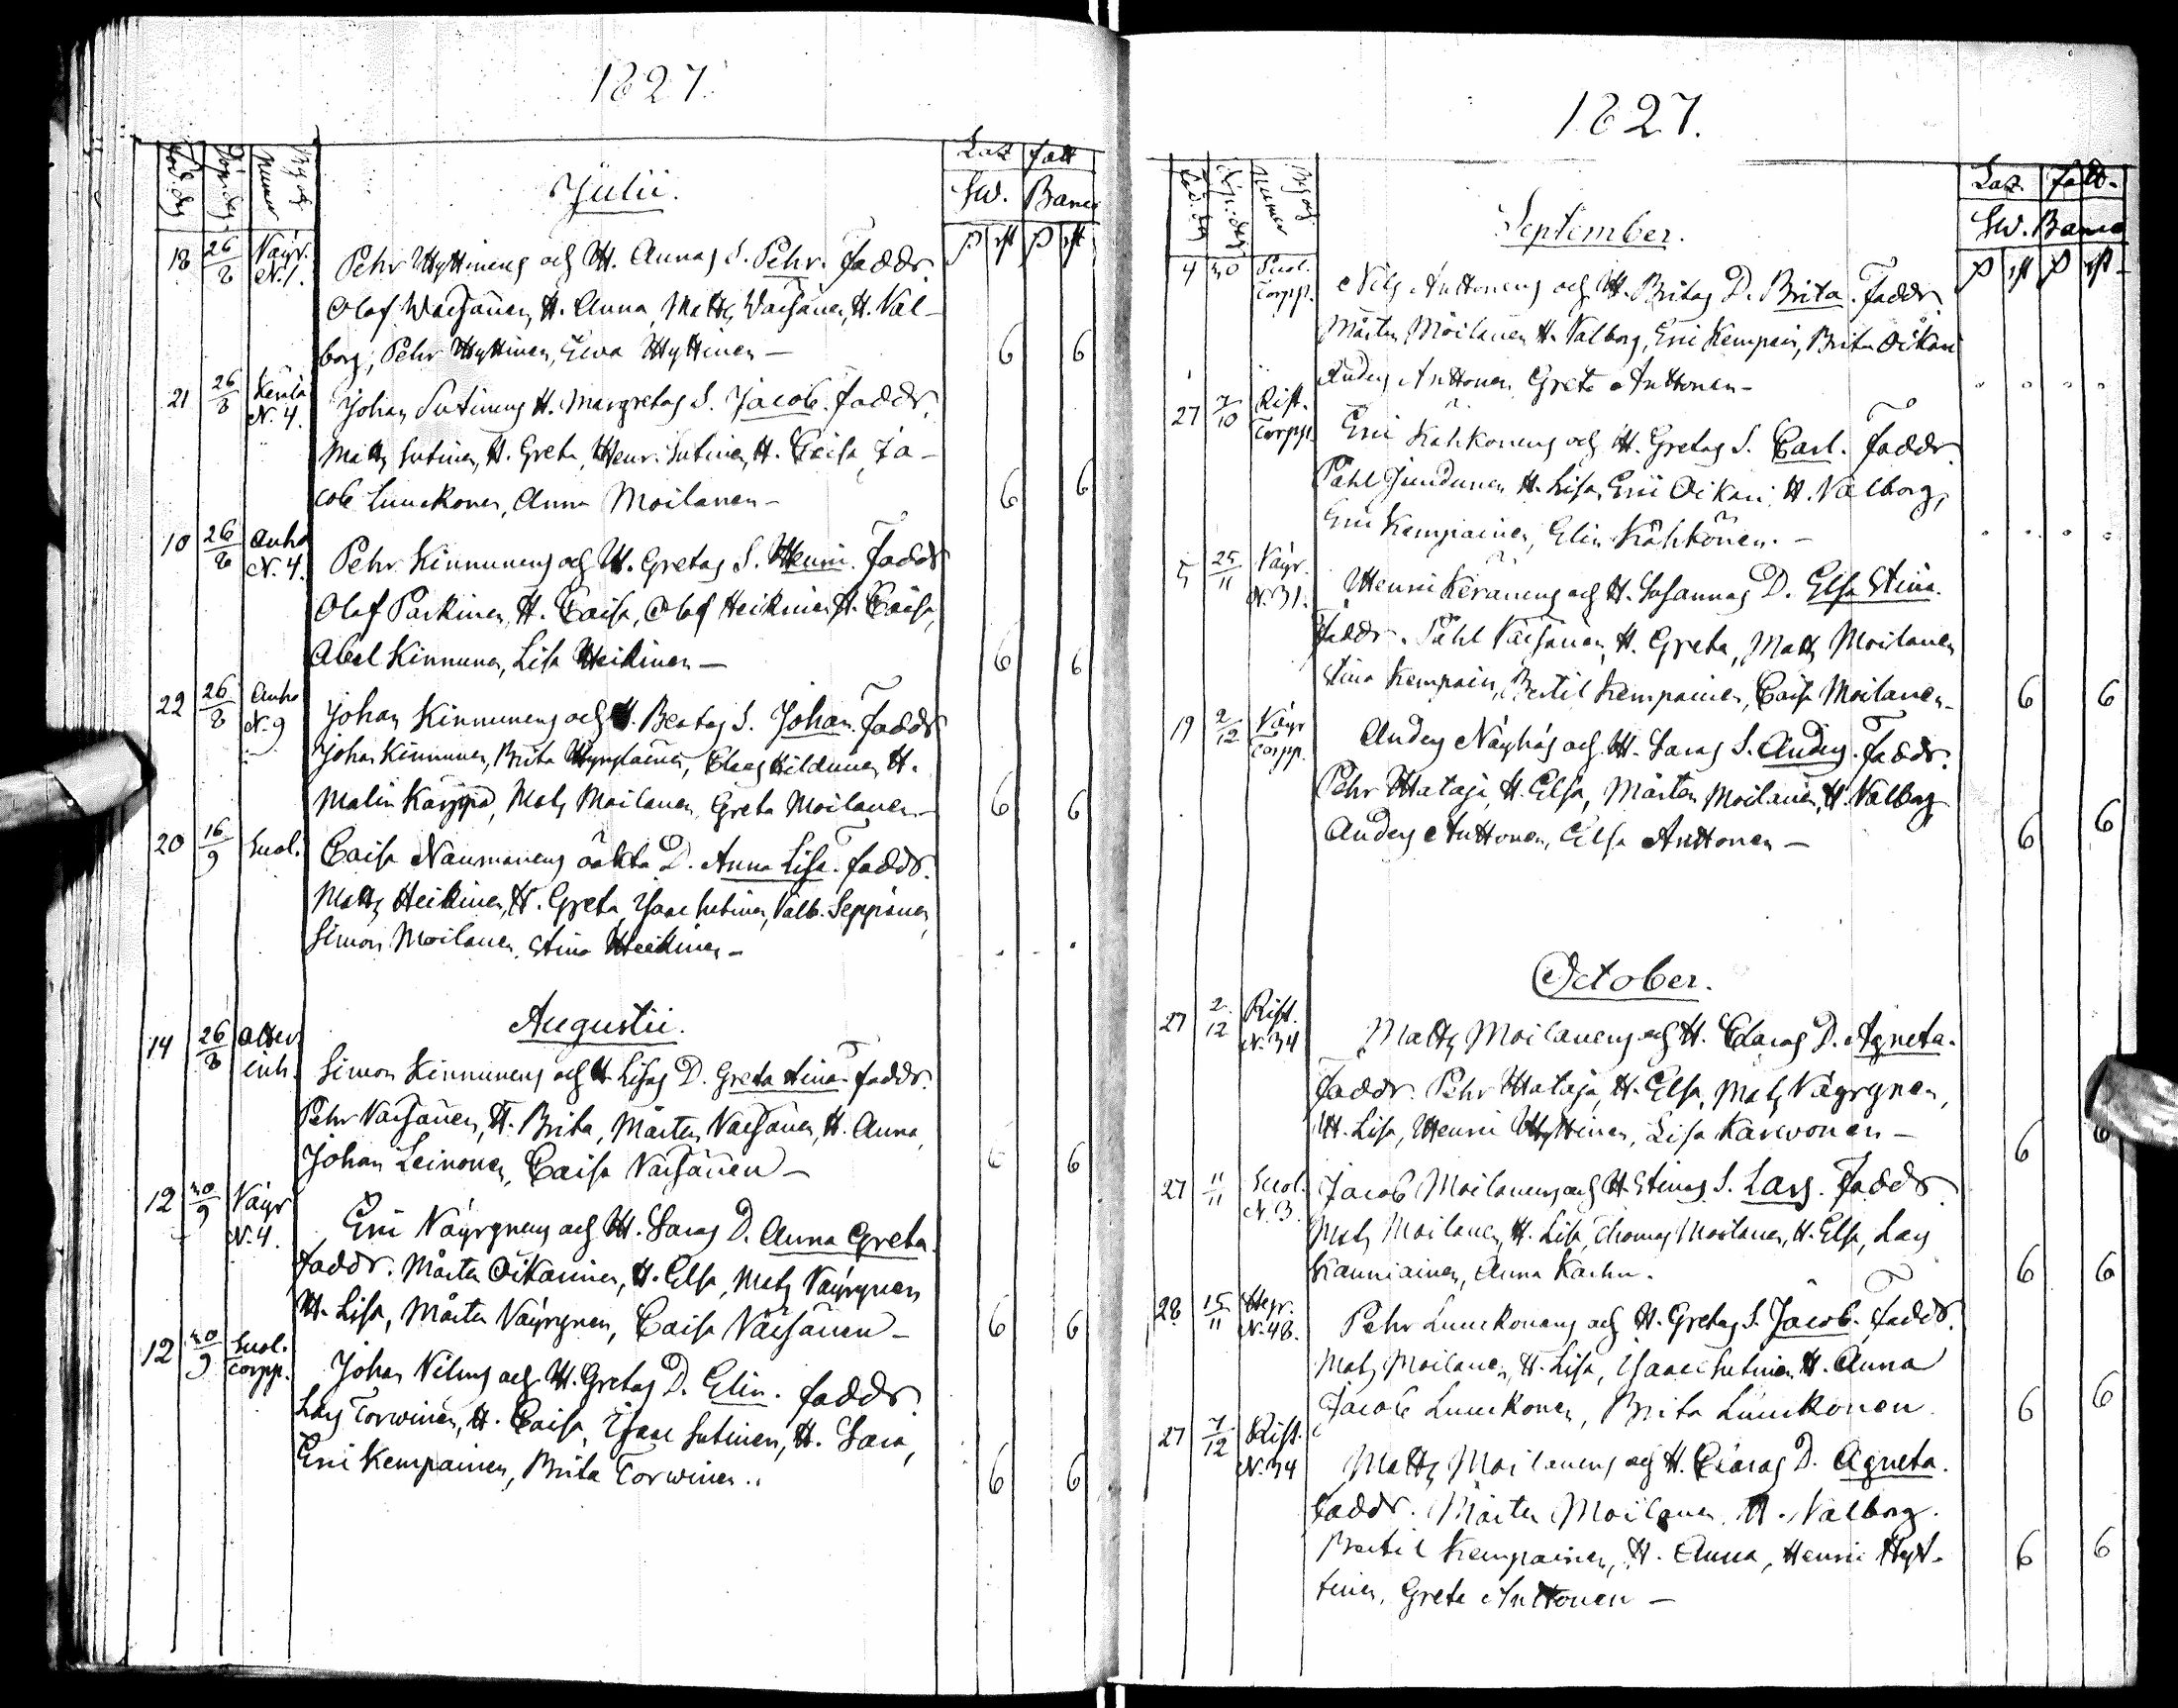 1827.
Föd. dag
Döp. dag
By och Numer
Laz fatt
Sw. Banco
Julii.
18 26/8 Näyr. N. 1. Pehr Hyttinens och H. Annas S. Pehr. Faddr.
Olof Waisänen, H. Anna, Matts Waisänen, H. Val-
borg, Pehr Hyttinen, Ewa Hyttinen — 6 6
21 26/8 N. 4. Johan Sutinens H. Margretas S. Jacob. Faddr.
Matts Sutinen, H. Greta, Henr. Sutinen, H. Caisa, Ja-
cob Luuckonen, Anna Moilanen — 6 6
10 26/8 Anho N. 4. Pehr Kinnunens och H. Gretas S. Henric. Faddr
Olof Parkinen, H. Caisa, Olof Heikinen H. Caisa,
Abel Kinnunen, Lisa Heikinen — 6 6
22 26/8 Anho N. 9 Johan Kinnunens och H. Beatas S. Johan. Faddr
Johan Kinnunen, Brita, Claes Hildunen H.
Malin Karppa, Mats Moilanen, Greta Moilanen — 6 6
20 16/9 Suol. Caisa Naumanens oäkta D. Anna Lisa. Faddr.
Matts Heikinen, H. Greta, Isaac Sutinen, Valb. Seppänen,
Simon Moilanen, Stina Heikinen —
Augustii.
14 26/8 inh. Simon Kinnunens och H. Lisas D. Greta Stina. Faddr.
Pehr Vaisänen, H. Brita, Mårten Vaisänen, H. Anna,
Johan Leinonen, Caisa Vaisänen — 6 6
12 30/9 Näyr N. 4. Eric Näyrynens och H. Saras D. Anna Greta.
Faddr. Mårten Oikarinen, H. Elsa, Mats Näyrynen
H. Lisa, Mårten Näyrynen, Caisa Väisänen — 6 6
12 30/9 Suol. torpp. Johan Nilus och H. Gretas D. Elin. Faddr.
Lars Torwinen, H. Caisa, Isaac Sutinen, H. Sara,
Eric Kempainen, Brita Torwinen. 6 6
1827.
Föd. dag
Döp. dag
By och Numer
Laz. fatt.
Sw. Banco
September.
4 30 Suol. Torpp. Nils Anttonens och H. Britas D. Brita. Faddr.
Mårten Moilanen H. Valborg, Eric Kempain, Brita Oikari
Anders Anttonen, Greta Anttonen —
27 7/10 Rist. Torpp. Eric Kähkönens och H. Gretas S. Carl. Faddr.
Påhl Jundunen H. Lisa, Eric Oikari, H. Valborg,
Eric Kempainen, Elin Kähkönen. —
5 25/11 Näyr. N. 31. Henric Keränens och H. Susannas D. Elsa Stina.
Faddr. Påhl Väisänen, H. Greta, Matts Moilanen
Stina Kempain, Bertil Kempainen, Caisa Moilanen — 6 6
19 2/12 Näyr torpp. Anders Näyhäs och H. Saras S. Anders. Faddr.
Pehr Hataja, H. Elsa, Mårten Moilanen, H. Valborg
Anders Anttonen, Elsa Anttonen — 6 6
October.
27 2/12 Rist. N. 34 Matts Moilanens och H. Claras D. Agneta.
Faddr. Pehr Hataja, H. Elsa, Mats Näyrynen,
H. Lisa, Henric Hyttinen, Lisa Karvonen — 6 6
27 11/11 Suol. N. 3. Jacob Moilanens och H. Stinas S. Lars. Faddr.
Mats Moilanen, H. Lisa, Thomas Moilanen, H. Elsa, Lars
Kanniainen, Anna Karhu. 6 6
28 15/11 N. 48. Pehr Luuckonens och H. Gretas S. Jacob. Faddr.
Mats Moilanen, H. Lisa, Isaac Sutinen H. Anna
Jacob Luuckonen, Brita Luuckonen 6 6
27 7/12 Rist. N. 34 Matts Moilanens och H. Claras D. Agneta.
Faddr. Mårten Moilanen, H. Valborg.
Bertil Kempainen, H. Anna, Henric Hyt-
tinen, Greta Anttonen — 6 6